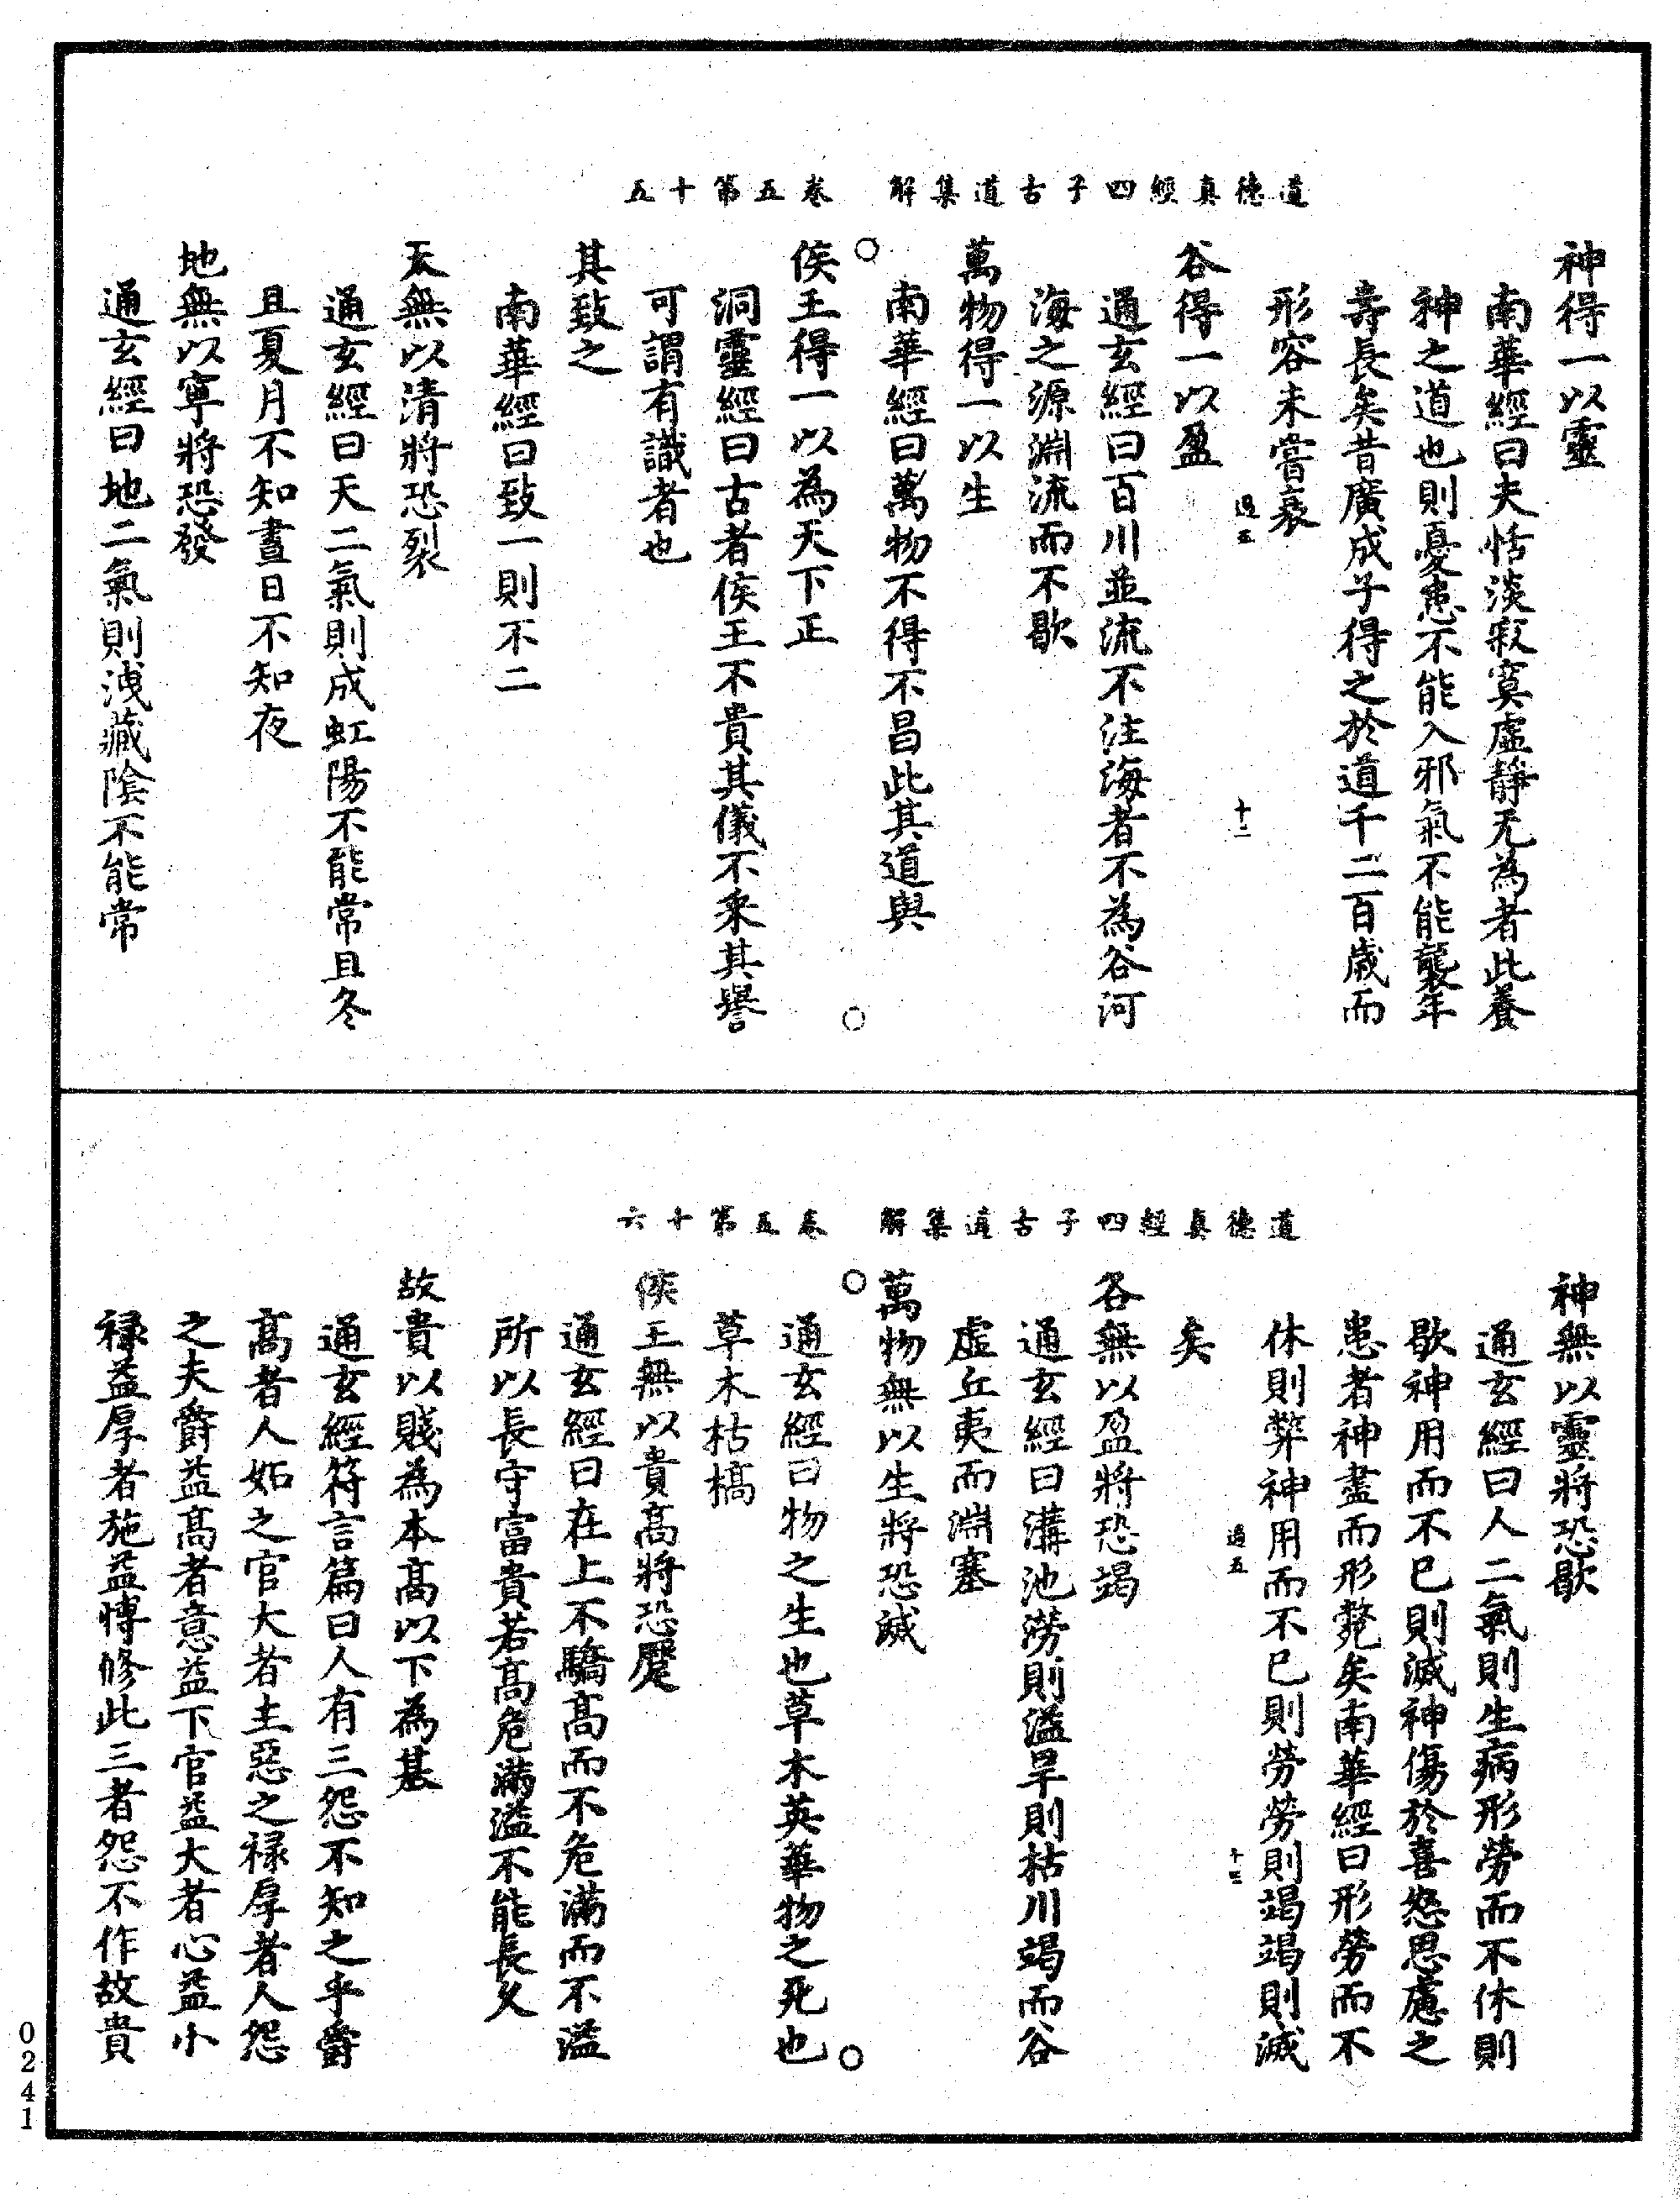 道德真經四子古道集解　卷五第十五
神得一以靈
南華經曰夫恬淡寂寞虛靜无為者此養
神之道也則憂患不能入邪氣不能襲年
壽長矣昔廣成子得之於道千二百歲而
形容未嘗衰
過五　十二
谷得一以盈
通玄經曰百川並流不注海者不為谷河
海之源淵流而不歇
萬物得一以生
南華經曰萬物不得不昌此其道與
侯王得一以為天下正
洞靈經曰古者侯王不貴其儀不采其譽
可謂有識者也
其致之
南華經曰致一則不二
天無以清將恐裂
通玄經曰天二氣則成虹陽不能常且冬
且夏月不知晝日不知夜
地無以寧將恐發
通玄經曰地二氣則洩藏陰不能常
道德真經四子古道集解　卷五第十六
神無以靈將恐歇
通玄經曰人二氣則生病形勞而不休則
歇神用而不已則滅神傷於喜怒思慮之
患者神盡而形斃矣南華經曰形勞而不
休則弊神用而不已則勞勞則竭竭則滅
過五　十三
矣
谷無以盈將恐竭
通玄經曰溝池澇則溢旱則枯川竭而谷
虛丘夷而淵塞
萬物無以生將恐滅
通玄經曰物之生也草木英華物之死也
草木枯槁
侯王無以貴高將恐蹷
通玄經曰在上不驕高而不危滿而不溢
所以長守富貴若高危滿溢不能長久
故貴以賤為本高以下為基
通玄經符言篇曰人有三怨不知之乎爵
高者人妬之官大者主惡之祿厚者人怨
之夫爵益高者意益下官益大者心益小
祿益厚者施益博修此三者怨不作故貴
0241